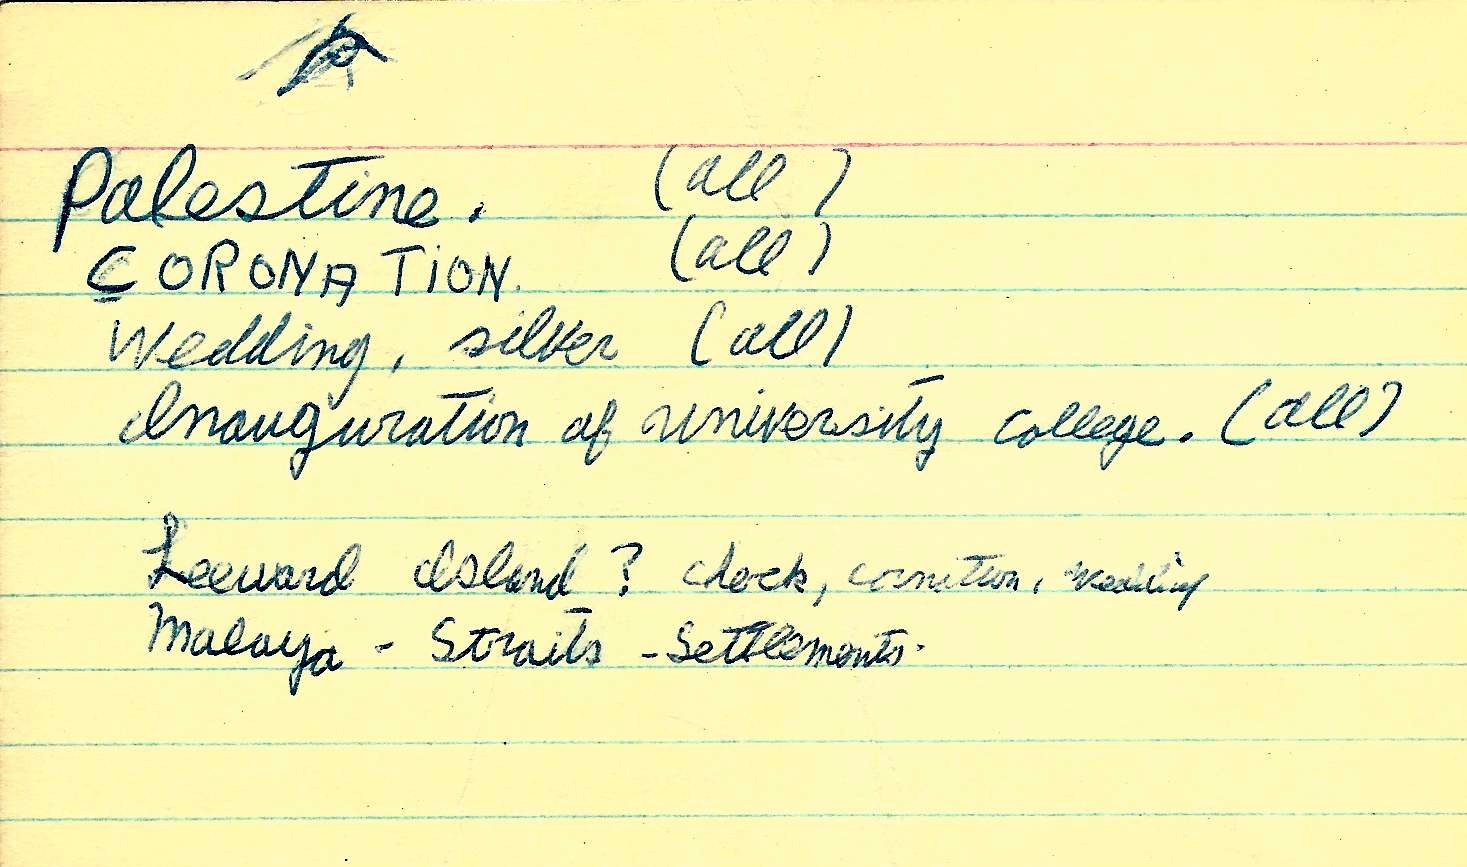 Palestine. (all)
CORONATION. (all)
Wedding, silver (all)
Inauguration of university college. (all)
Leeward Island ? check, cornetion, wedding
Malaya - Straits - Settlements.